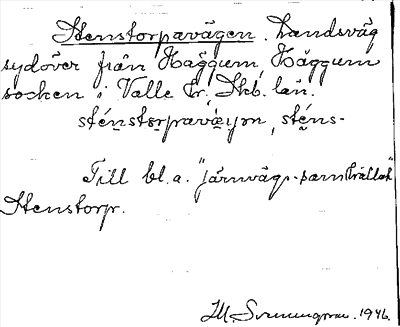 Stenstorpavägen. Landsväg
sydöver från Häggum, Häggum
socken i Valle hr, Skb. län.
sténstorpavæ̀yən, sténs-
Till bl.a. "järnvägs-samhället"
Stenstorp.
1946.